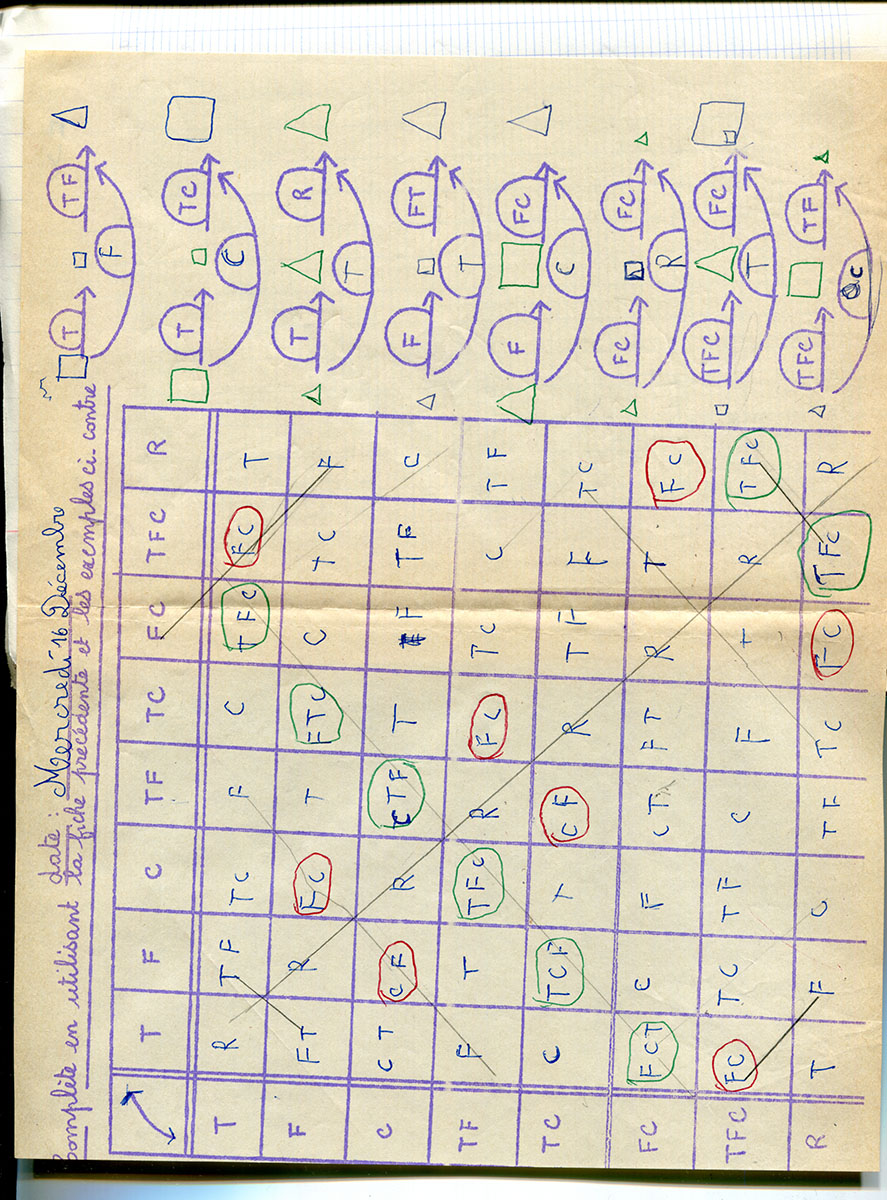 date : Mercredi 16 Décembre
Complète en utilisant la fiche précédente et les exemples ci-contre
T F C TF TC FC TFC R
T R TF TC F C TFC FC T
F FT R FC T FTC C TC F
C CT CF R CTF T F TF C
TF F T TFC R FC TC C TF
TC C TCF T CF R TF F TC
FC FCT C F CT FT R T FC
TFC FC TC TF C F T R TFC
R T F C TF TC FC TFC R
T TF
F
T TC
C
T R
T
F FT
T
F FC
C
FC FC
R
TFC FC
T
TFC TF
C